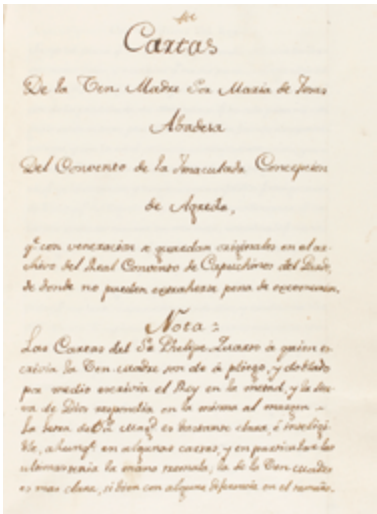 Cartas
De la Ven. Madre Sor Maria de Jesus
Abadesa
Del Convento de la Inmaculada Concepcion
de Agreda,
qe. con veneracion se guardan originales en el ar-
chivo del Real Convento de Capuchinos del Pardo,
de donde no pueden extraherse pena de excomunion.
Nota:
Las Cartas del Sr. Phelipe Quarto á quien es-
crivia la Ven. Madre son de á pliego, y doblado
por medio escrivia el Rey en la mitad, y la Sier-
va de Dios respondia en la misma al margen
la letra de S. Mag. es bastante clara, é inteligi-
ble, ahunqe. en algunas cartas, y en particular las
ultimas la mano remala; la de la Ven. Madre
es mas clara, si bien con alguna diferencia en el